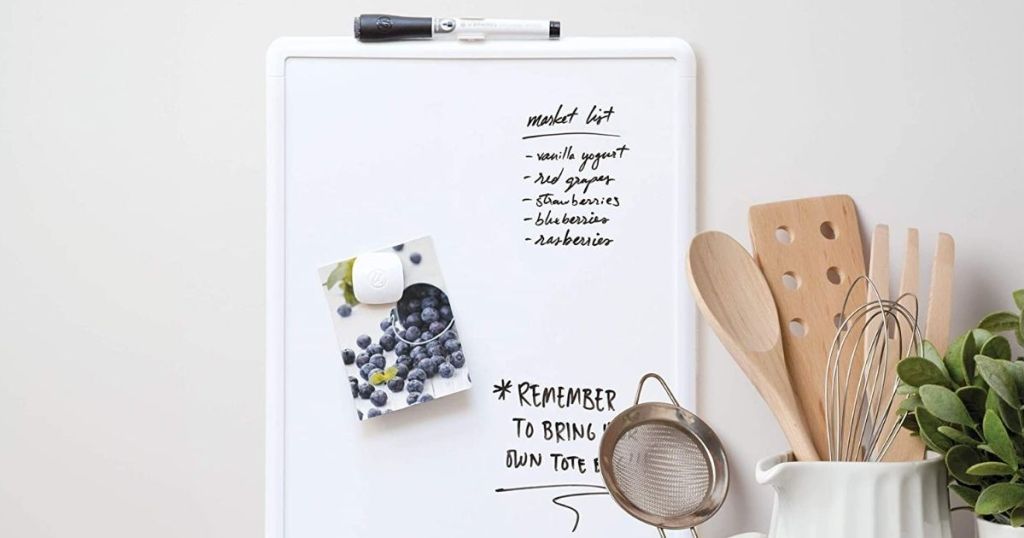 market list
- vanilla yogurt
- red grapes
- strawberries
- blueberries
- rasberries
* REMEMBER
TO BRING
OWN TOTE